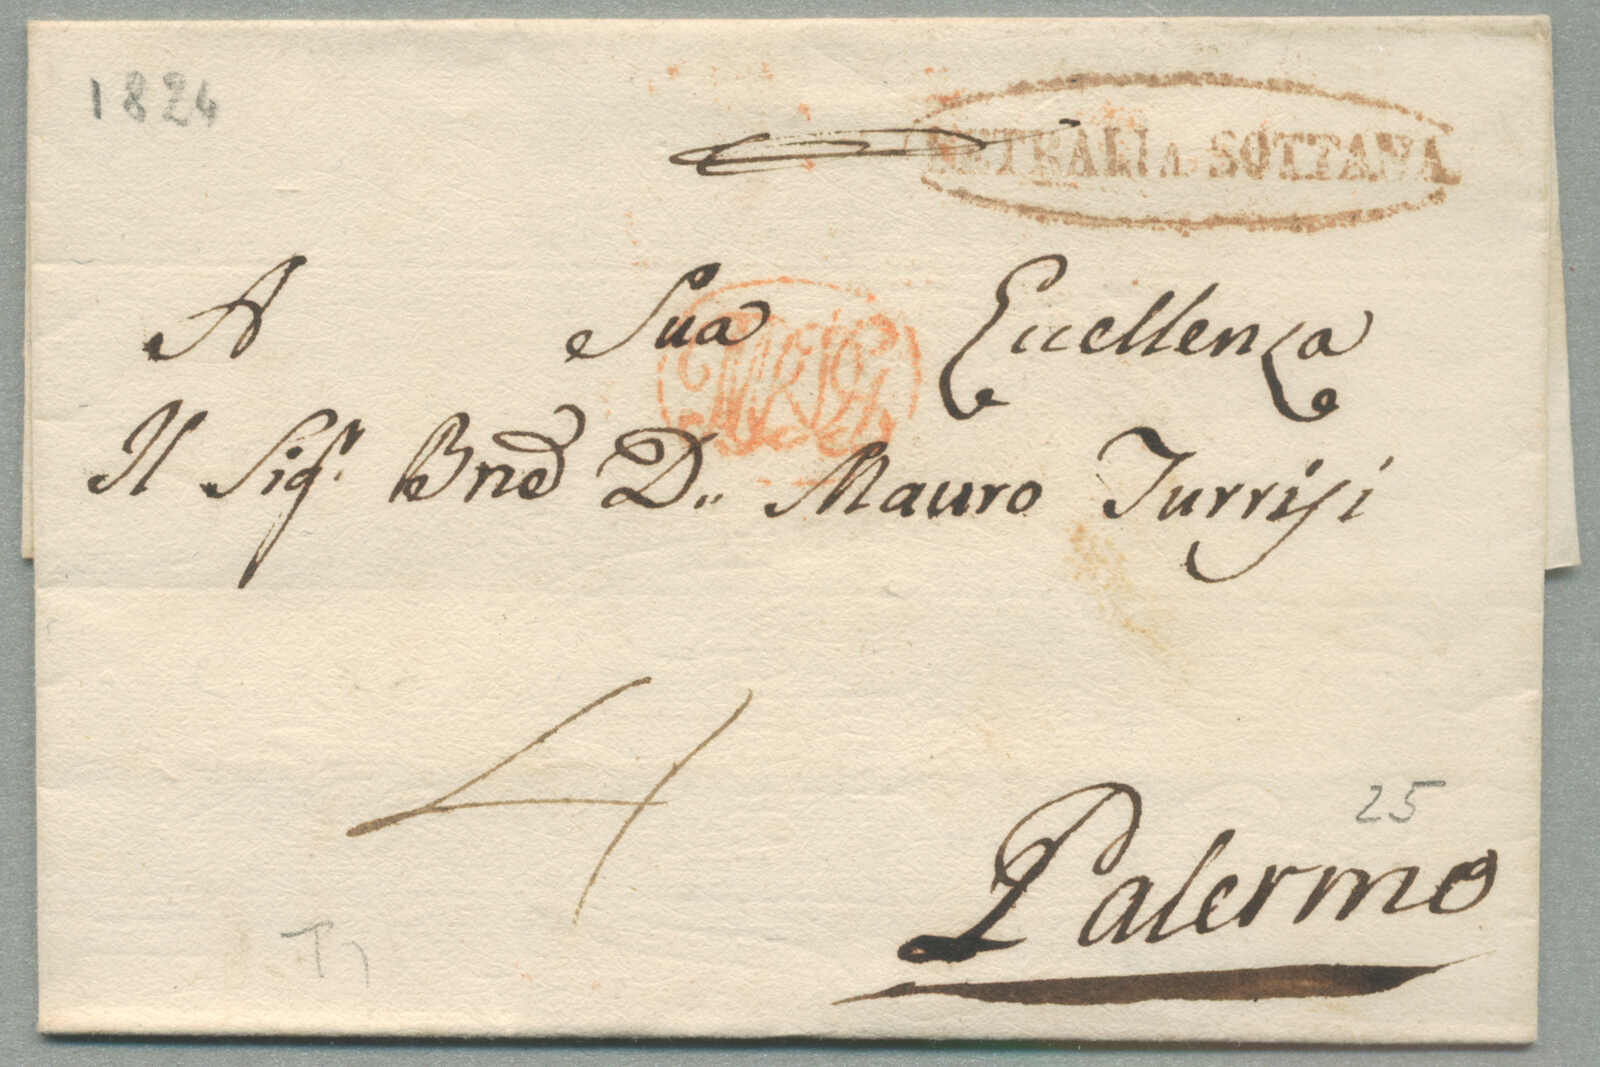 1824
PETRALIA SOTTANA
A Sua Eccellenza
Il Sig.r Bne D. Mauro Turrisi
4
25
Palermo